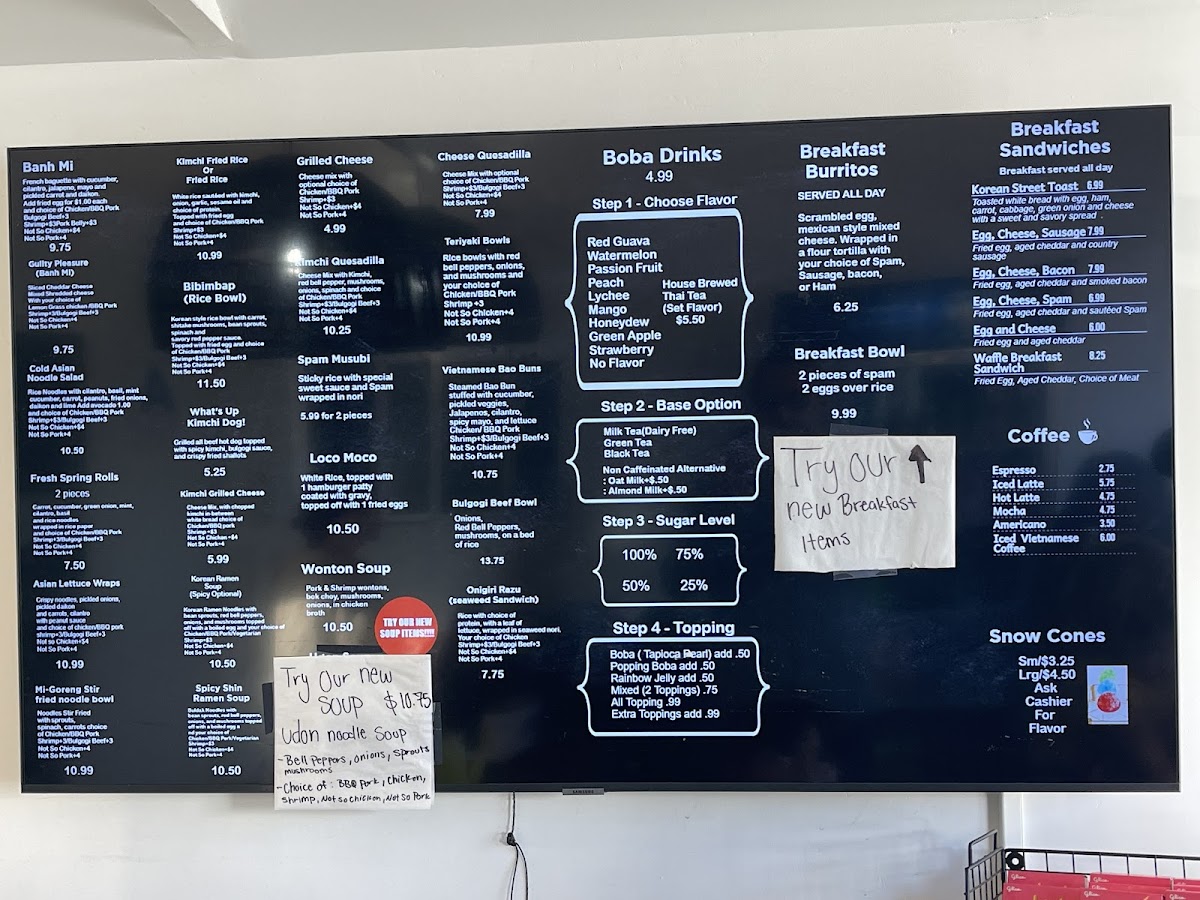 Banh Mi
French baguette with cucumber,
cilantro, jalapeno, mayo and
pickled carrot and daikon.
Add fried egg for $1.00 each
and choice of Chicken/BBQ Pork
Bulgogi Beef+3
Shrimp+$3Pork Belly+$3
Not So Chicken+$4
Not So Pork+4
9.75
Guilty Pleasure
(Banh Mi)
Sliced Cheddar Cheese
Mixed Shredded cheese
With your choice of
Lemon Grass chicken/BBQ Pork
Shrimp+3/Bulgogi Beef+3
Not So Chicken+4
Not So Pork+4
9.75
Cold Asian
Noodle Salad
Rice Noodles with cilantro, basil, mint
cucumber, carrot, peanuts, fried onions,
daikon and lime Add avocado 1.00
and choice of Chicken/BBQ Pork
Shrimp+$3/Bulgogi Beef+3
Not So Chicken+$4
Not So Pork+4
10.50
Fresh Spring Rolls
2 pieces
Carrot, cucumber, green onion, mint,
cilantro, basil
and rice noodles
wrapped in rice paper
and choice of Chicken/BBQ Pork
Shrimp+$3/Bulgogi Beef+3
Not So Chicken+4
Not So Pork+4
7.50
Asian Lettuce Wraps
Crispy noodles, pickled onions,
pickled daikon
and carrots, cilantro
with peanut sauce
and choice of chicken/BBQ pork
shrimp+3/Bulgogi Beef+3
Not so Chicken+$4
Not So Pork+4
10.99
Mi-Goreng Stir
fried noodle bowl
Noodles Stir Fried
with sprouts,
spinach, carrots choice
of Chicken/BBQ Pork
Shrimp+3/Bulgogi Beef+3
Not So Chicken+4
Not So Pork+4
10.99
Kimchi Fried Rice
Or
Fried Rice
White rice sautéed with kimchi,
onion, garlic, sesame oil and
choice of protein.
Topped with fried egg
and choice of Chicken/BBQ Pork
Shrimp+$3
Not So Chicken+$4
Not So Pork+4
10.99
Bibimbap
(Rice Bowl)
Korean style rice bowl with carrot,
shitake mushrooms, bean sprouts,
spinach and
savory red pepper sauce.
Topped with fried egg and choice
of Chicken/BBQ Pork
Shrimp+$3/Bulgogi Beef+3
Not So Chicken+$4
Not So Pork+4
11.50
What's Up
Kimchi Dog!
Grilled all beef hot dog topped
with spicy kimchi, bulgogi sauce,
and crispy fried shallots
5.25
Kimchi Grilled Cheese
Cheese Mix, with chopped
kimchi in between
white bread choice of
Chicken/BBQ pork
Shrimp +$3
Not So Chicken +$4
Not So Pork+4
5.99
Korean Ramen
Soup
(Spicy Optional)
Korean Ramen Noodles with
bean sprouts, red bell peppers,
onions, and mushrooms topped
off with a boiled egg and your choice of
Chicken/BBQ Pork/Vegetarian
Shrimp+$3
Not So Chicken+$4
Not So Pork+4
10.50
Spicy Shin
Ramen Soup
bean sprouts, red bell peppers,
onions, and mushrooms topped
off with a boiled egg a
nd your choice of
Chicken/BBQ Pork/Vegetarian
Shrimp+£3
Not So Chicken+$4
Not So Pork+4
10.50
Grilled Cheese
Cheese mix with
optional choice of
Chicken/BBQ Pork
Shrimp+$3
Not So Chicken+$4
Not So Pork+4
4.99
Kimchi Quesadilla
Cheese Mix with Kimchi,
red bell pepper, mushrooms,
onions, spinach and choice
of Chicken/BBQ Pork
Shrimp+$3/Bulgogi Beef+3
Not So Chicken+$4
Not So Pork+4
10.25
Spam Musubi
Sticky rice with special
sweet sauce and Spam
wrapped in nori
5.99 for 2 pieces
Loco Moco
White Rice, topped with
1 hamburger patty
coated with gravy,
topped off with 1 fried eggs
10.50
Wonton Soup
Pork & Shrimp wontons,
bok choy, mushrooms,
onions, in chicken
broth
10.50
TRY OUR NEW
SOUP ITEMS!!!!
Try Our new
SOUP $10.75
Udon noodle Soup
- Bell Peppers, onions, sprouts
mushrooms
- Choice of: BBQ Pork, Chicken,
Shrimp, Not so Chicken, Not So Pork
Cheese Quesadilla
Cheese Mix with optional
choice of Chicken/BBQ Pork
Shrimp+$3/Bulgogi Beef+3
Not So Chicken+$4
Not So Pork+4
7.99
Teriyaki Bowls
Rice bowls with red
bell peppers, onions,
and mushrooms and
your choice of
Chicken/BBQ Pork
Shrimp +3
Not So Chicken+4
Not So Pork+4
10.99
Vietnamese Bao Buns
Steamed Bao Bun
stuffed with cucumber,
pickled veggies,
Jalapenos, cilantro,
spicy mayo, and lettuce
Chicken/ BBQ Pork
Shrimp+$3/Bulgogi Beef+3
Not So Chicken+4
Not So Pork+4
10.75
Bulgogi Beef Bowl
Onions,
Red Bell Peppers,
mushrooms, on a bed
of rice
13.75
Onigiri Razu
(seaweed Sandwich)
Rice with choice of
protein, with a leaf of
lettuce, wrapped in seaweed nori.
Your choice of Chicken
Shrimp+$3/Bulgogi Beef+3
Not So Chicken+$4
Not So Pork+4
7.75
Boba Drinks
4.99
Step 1 - Choose Flavor
Red Guava
Watermelon
Passion Fruit
Peach
Lychee
Mango
Honeydew
Green Apple
Strawberry
No Flavor
House Brewed
Thai Tea
(Set Flavor)
$5.50
Step 2 - Base Option
Milk Tea(Dairy Free)
Green Tea
Black Tea
Non Caffeinated Alternative
: Oat Milk+$.50
: Almond Milk+$.50
Step 3 - Sugar Level
100% 75%
50% 25%
Step 4 - Topping
Boba ( Tapioca Pearl) add .50
Popping Boba add .50
Rainbow Jelly add .50
Mixed (2 Toppings) .75
All Topping .99
Extra Toppings add .99
Breakfast
Burritos
SERVED ALL DAY
Scrambled egg,
mexican style mixed
cheese. Wrapped in
a flour tortilla with
your choice of Spam,
Sausage, bacon,
or Ham
6.25
Breakfast Bowl
2 pieces of spam
2 eggs over rice
9.99
Try our
new Breakfast
Items
Breakfast
Sandwiches
Breakfast served all day
Korean Street Toast 6.99
Toasted white bread with egg, ham,
carrot, cabbage, green onion and cheese
with a sweet and savory spread .
Egg, Cheese, Sausage 7.99
Fried egg, aged cheddar and country
sausage
Egg, Cheese, Bacon 7.99
Fried egg, aged cheddar and smoked bacon
Egg, Cheese, Spam 6.99
Fried egg, aged cheddar and sautéed Spam
Egg and Cheese 6.00
Fried egg and aged cheddar
Waffle Breakfast 8.25
Sandwich
Fried Egg, Aged Cheddar, Choice of Meat
Coffee
Espresso 2.75
Iced Latte 5.75
Hot Latte 4.75
Mocha 4.75
Americano 3.50
Iced Vietnamese 6.00
Coffee
Snow Cones
Sm/$3.25
Lrg/$4.50
Ask
Cashier
For
Flavor
SAMSUNG